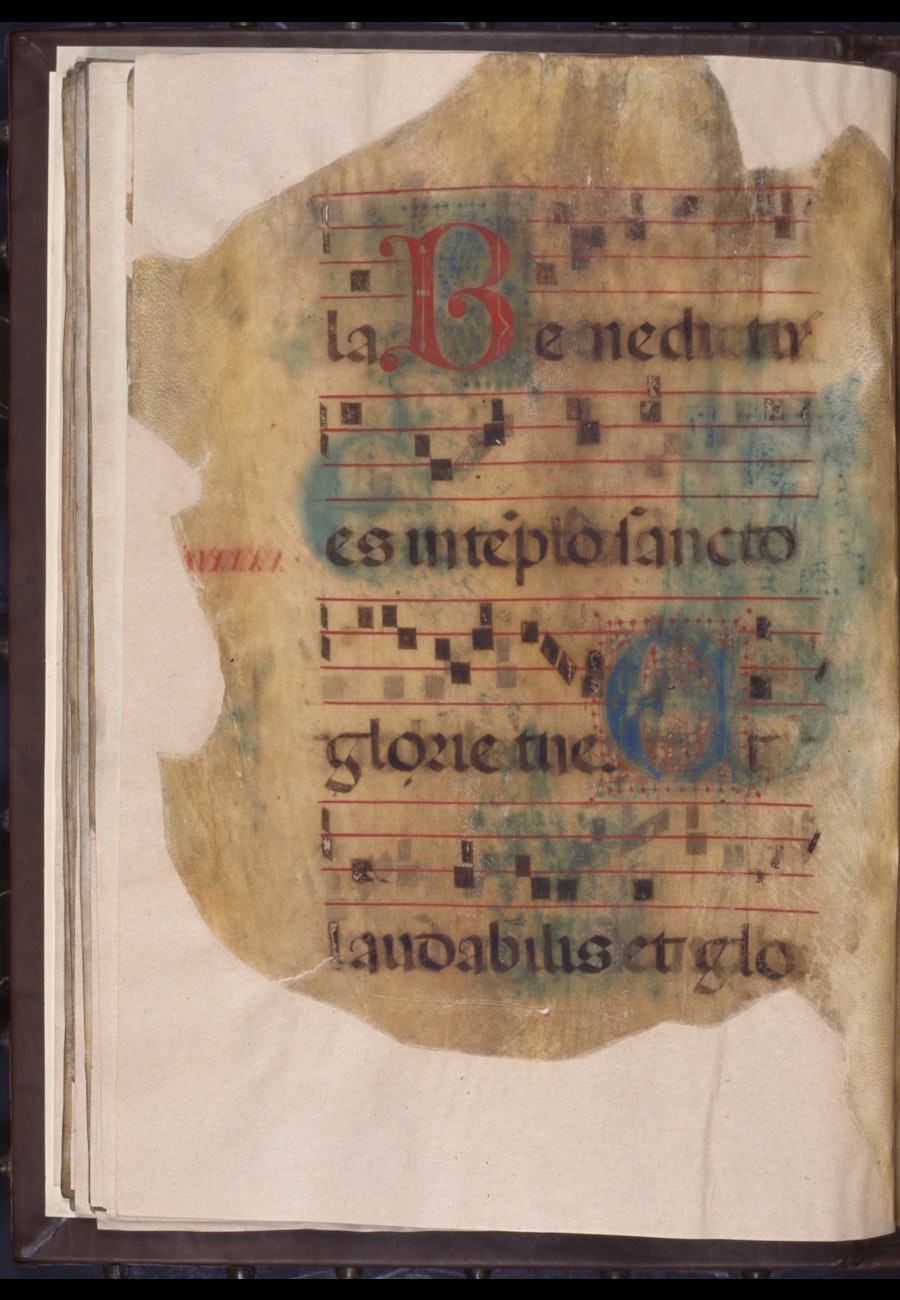 la Benedictus
es in tẽplo sancto
glorie tue. Et
laudabilis et glo